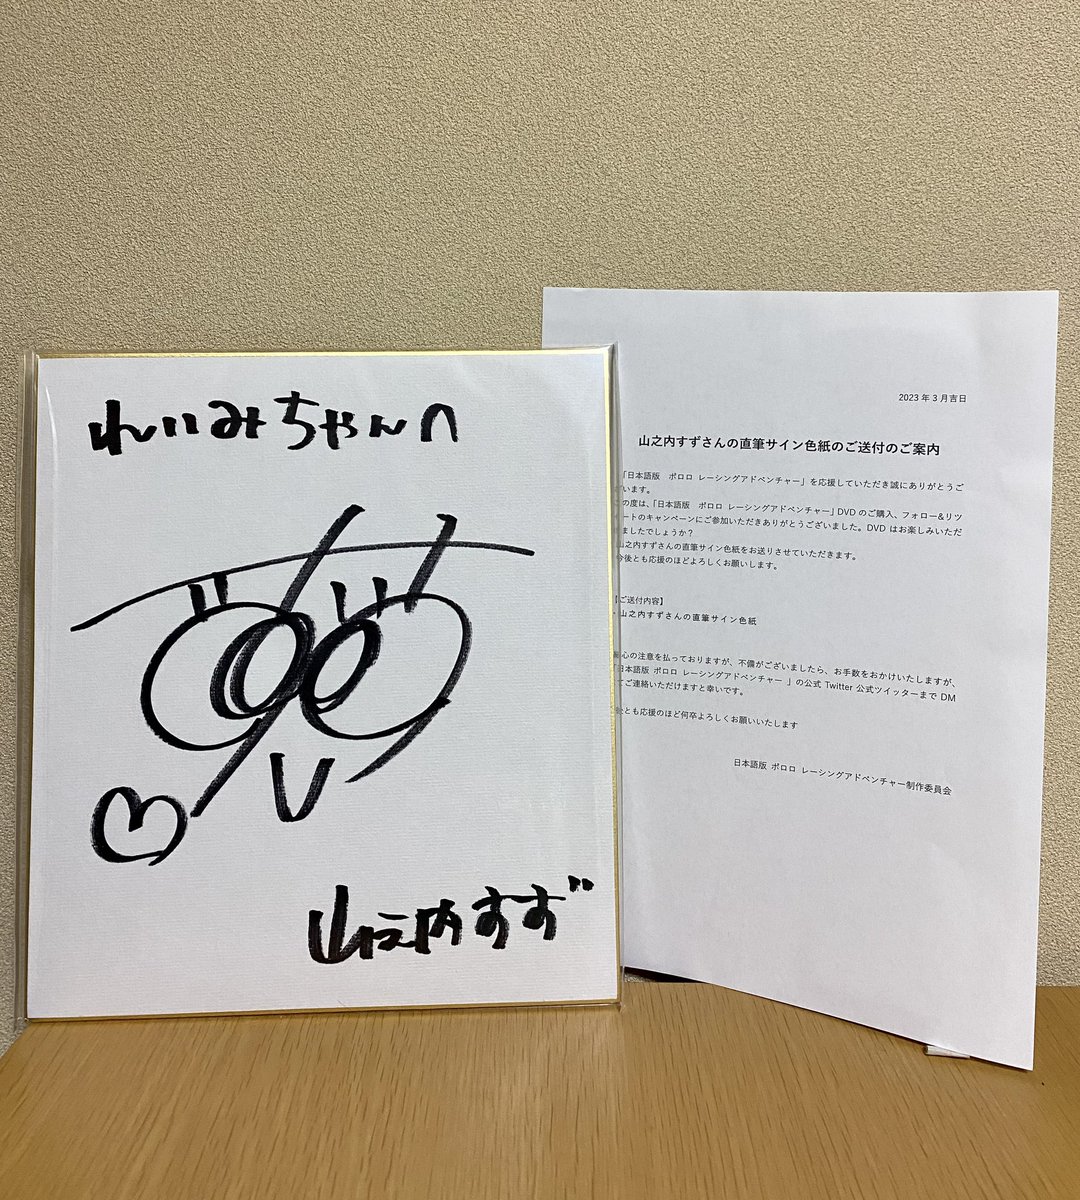 れいみちゃんへ
山之内すず
2023 年 3 月吉日
山之内すずさんの直筆サイン色紙のご送付のご案内
「日本語版 ポロロ レーシングアドベンチャー」を応援していただき誠にありがとうござ
います。
の度は、「日本語版 ポロロ レーシングアドベンチャー」DVD のご購入、フォロー&リツ
ートのキャンペーンにご参加いただきありがとうございました。DVD はお楽しみいただ
ましたでしょうか?
山之内すずさんの直筆サイン色紙をお送りさせていただきます。
今後とも応援のほどよろしくお願いします。
【ご送付内容】
・山之内すずさんの直筆サイン色紙
心の注意を払っておりますが、不備がございましたら、お手数をおかけいたしますが、
日本語版 ポロロ レーシングアドベンチャー 」の公式 Twitter 公式ツイッターまで DM
てご連絡いただけますと幸いです。
とも応援のほど何卒よろしくお願いいたします
日本語版 ポロロ レーシングアドベンチャー制作委員会